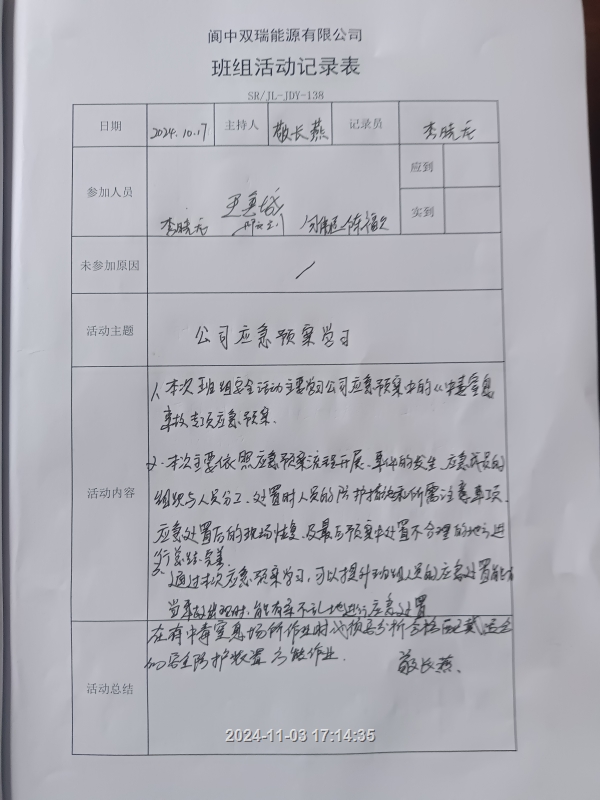 阆中双瑞能源有限公司
班组活动记录表
SR/JL-JDY-138
日期 2024.10.17 主持人 敬长燕 记录员 李晓龙
参加人员 应到
李晓龙
实到
未参加原因 /
活动主题 公司应急预案学习
活动内容
1、本次班组安全活动主要学习公司应急预案中的《中毒窒息
事故专项应急预案.
2、本次主要依照应急预案流程开展、事件的发生、应急成员的
组织与人员分工、处置时人员的防护措施和所需注意事项、
应急处置后的现场恢复、及最后预案中处置不合理的地方进
行总结完善
3、通过本次应急预案学习，可以提升班组人员的应急处置能力
当事故出现时，能有条不乱地进行应急处置
活动总结
在有中毒窒息场所作业时必须分析合格配戴
的安全防护装置方能作业.
敬长燕.
2024-11-03 17:14:35